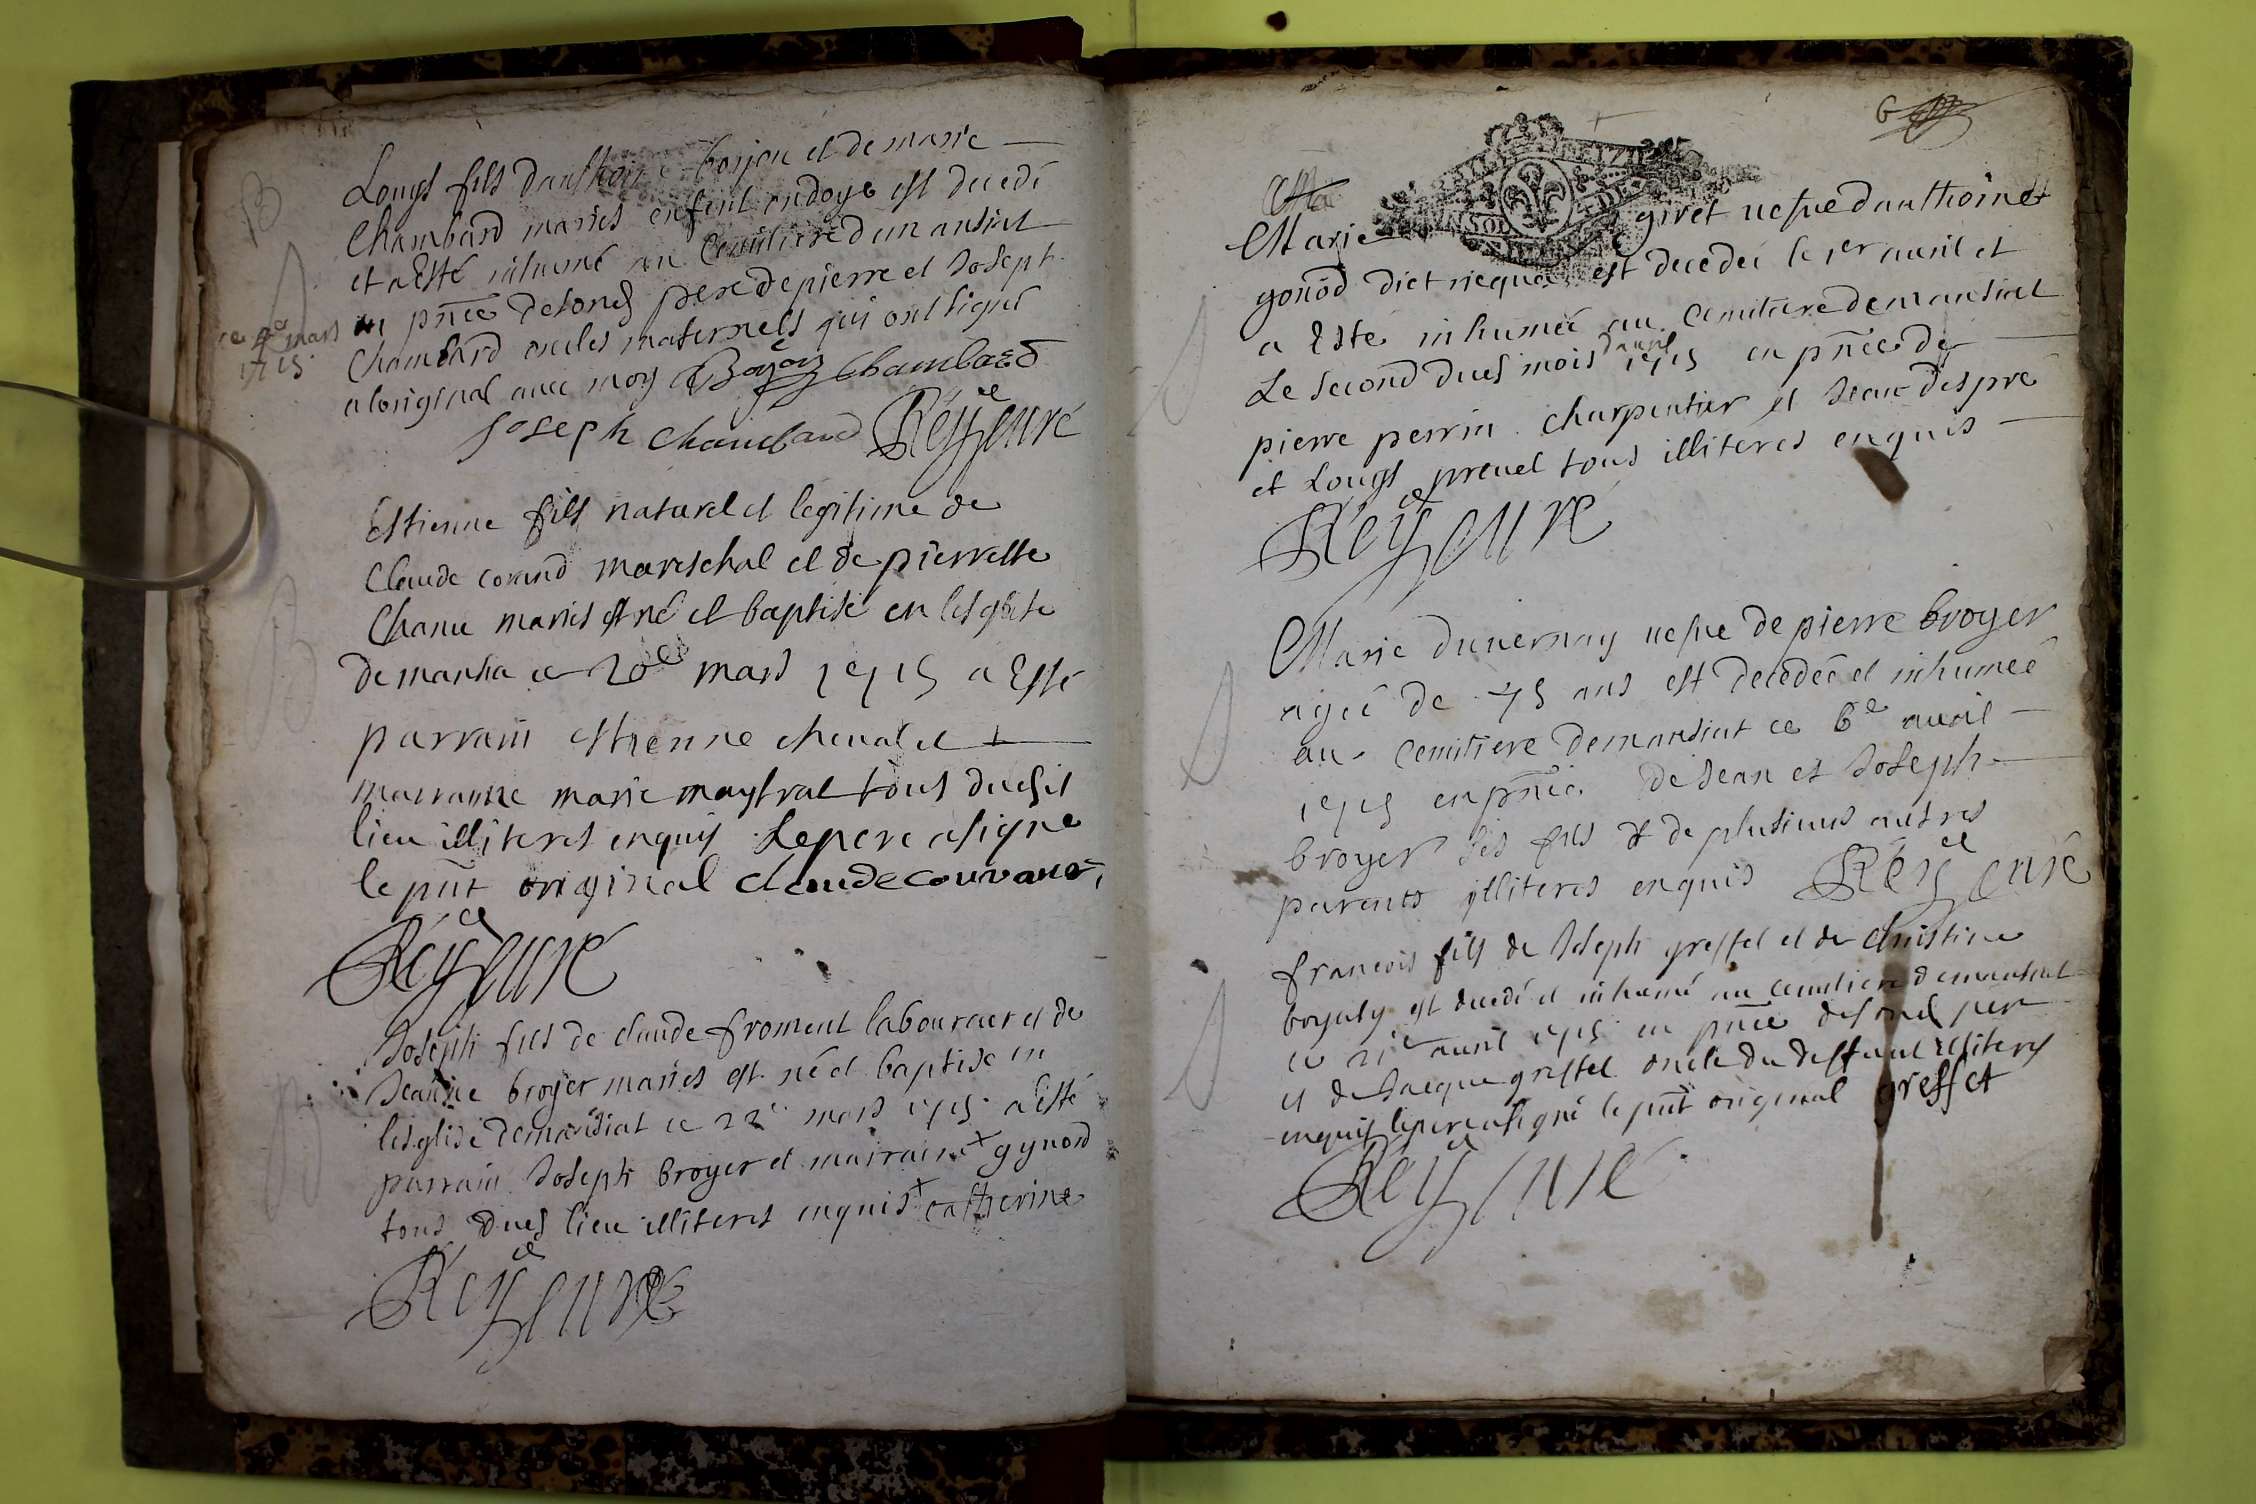 B
Louys fils danthoine borjon et de marie
Chambard mariés enfent ondoyé est decedé
et a esté inhumé au Cemitiere de mansiat
ce mars 1715
en pnce de son d pere de pierre et Joseph
Chambard oncles maternels qui ont signé
a loriginal avec moy Chambard
Joseph Chambard Rey curé
Estienne fils naturel et legitime de
Claude corand mareschal et de pierrette
Chanu mariés est né et baptisé en lesglise
de mansia ce 20e mars 1715 a esté
parrain estienne cheval et
marraine marie maystral tous dudit
lieu illiterés enquis Le pere a signé
le pnt original claude couvand
Rey curé
B
Joseph fils de claude froment laboureur et de
Jeanne broyer mariés est né et baptisé en
lesglise demansiat ce 22e mars 1715 a esté
parrain Joseph broyer et marraine + gynod
tous dud lieu illiterés enquis + catherine
Rey curé
6
Marie givet vefve danthoine
gonod dict ricque est decedée le 1er avril et
a esté inhumée au Cemitiere de mansiat
Le second dud mois davril 1715 en pnce de
pierre perrin charpentier et Jean despré
et Louys prevel tous illiterés enquis
Rey curé
Marie duvernay vefve de pierre broyer
agée de 75 ans est decedée et inhumée
au Cemitiere demansiat ce 6e avril
1715 en pnce de Jean et Joseph
broyer ses fils & de plusieurs autres
parents illiterés enquis Rey curé
francois fils de Joseph greffet et de christine
est decedé et inhumé au cemitiere demansiat
ce 21e avril 1715 en pnce de son d pere
et de Jacque greffet oncle du deffunt illiteres
enquis le pere a signé le pnt original greffet
Rey curé